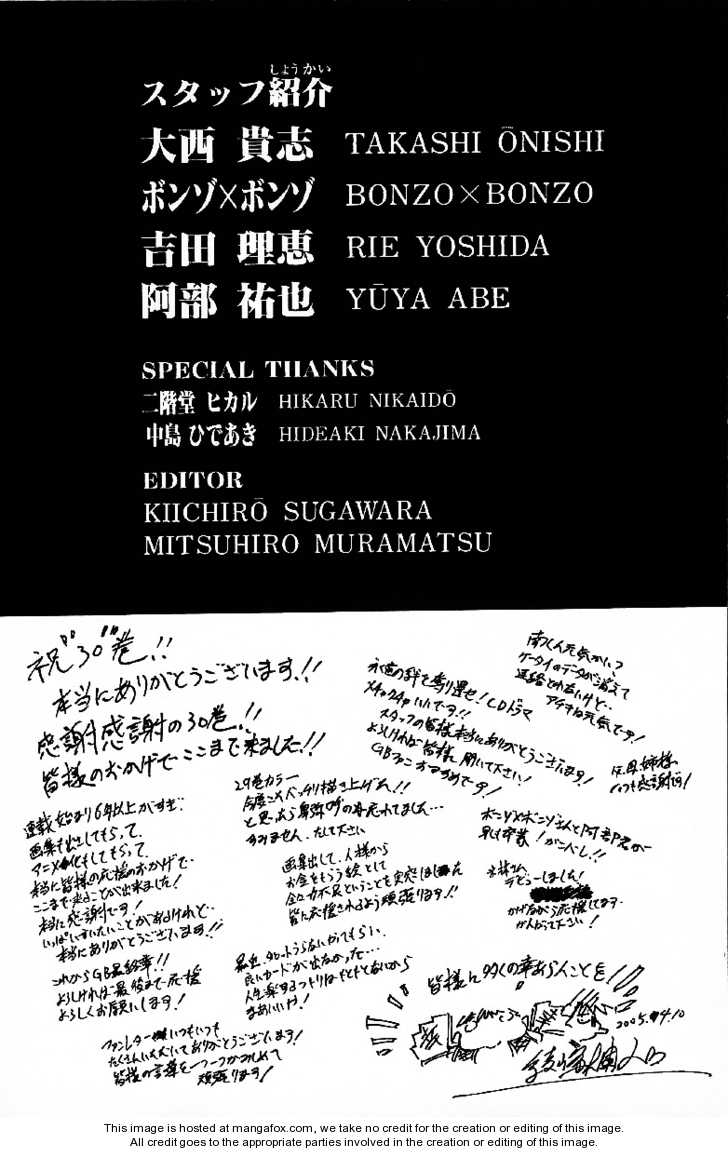 しょうかい
スタッフ紹介
大西 貴志 TAKASHI ŌNISHI
ボンゾ×ボンゾ BONZO×BONZO
吉田 理恵 RIE YOSHIDA
阿部 祐也 YŪYA ABE
SPECIAL THANKS
二階堂 ヒカル HIKARU NIKAIDŌ
中島 ひであき HIDEAKI NAKAJIMA
EDITOR
KIICHIRŌ SUGAWARA
MITSUHIRO MURAMATSU
祝"30"巻!!
本当にありがとうございます!!
感謝感謝の30巻!!
皆様のおかげでここまで来ました!!
連載始まり6年以上がすぎ
画集も出してもらって、
アニメ化もしてもらって、
本当に皆様の応援のおかげで
ここまで来ることが出来ました!
本当に感謝です!
いっぱい言いたいことがあるけれど…
本当にありがとうございます!!
これからGB最終章!!
よろしければ最後まで応援
よろしくお願いします!
ファンレター いつもいつも
たくさんいただいてありがとうございます!
皆様の言葉を一つ一つかみしめて
頑張ります!
29巻カラー
と思ったら卑弥呼の 忘れてました…
すみません
画集出して、人様から
お金をもらう絵として
皆に応援されるよう頑張ります!!
良いカードが出なかった…
まあいいや!
永遠の絆を奪り還せ!CDドラマ
メチャクチャいいです!!
スタッフの皆様本当にありがとうございます!
よろしければ皆様、聞いて下さい!
GBファンオススメです!
南くん元気かい?
ケータイのデータが消えて
連絡とれないけど…
アチキは元気です!
いつも感謝です!
ボンゾ×ボンゾさんと阿部君が
デビューしました!
かげながら応援してます
がんばって下さい!
皆様に多くの幸あらんことを!!
2005.4.10
This image is hosted at mangafox.com, we take no credit for the creation or editing of this image.
All credit goes to the appropriate parties involved in the creation or editing of this image.